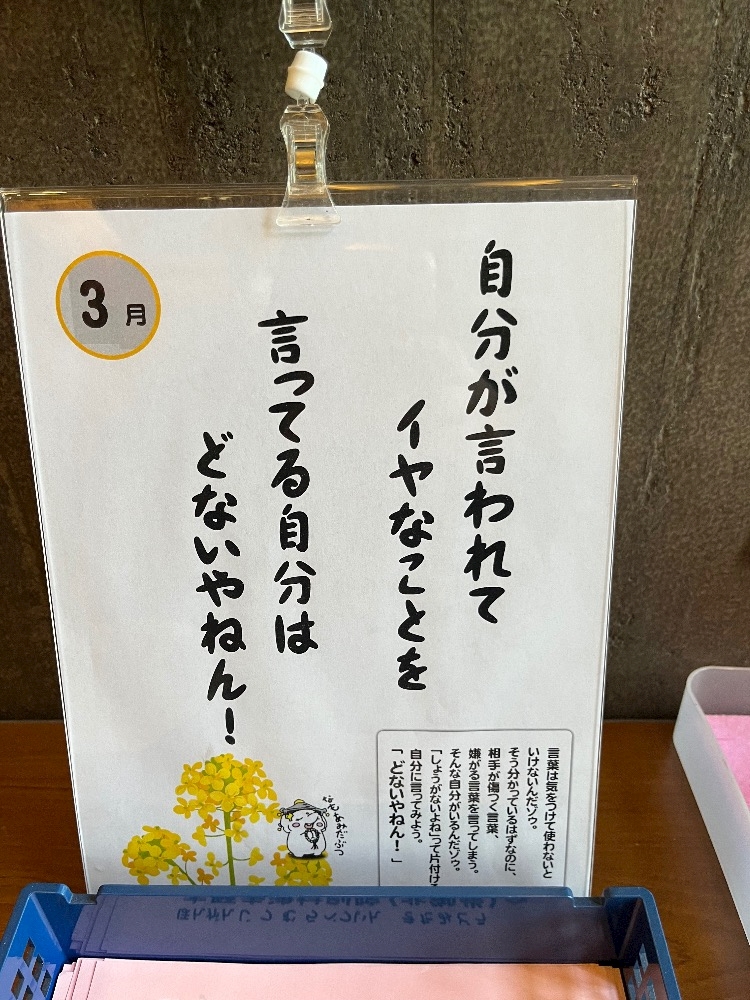 3月
自分が言われて
イヤなことを
言ってる自分は
どないやねん!
言葉は気をつけて使わないと
いけないんだゾゥ。
そう分かっているはずなのに、
相手が傷つく言葉、
嫌がる言葉を言ってしまう。
そんな自分がいるんだゾゥ。
「しょうがないよね」って片付け
自分に言ってみよう。
「どないやねん!」
なもあみだぶつ